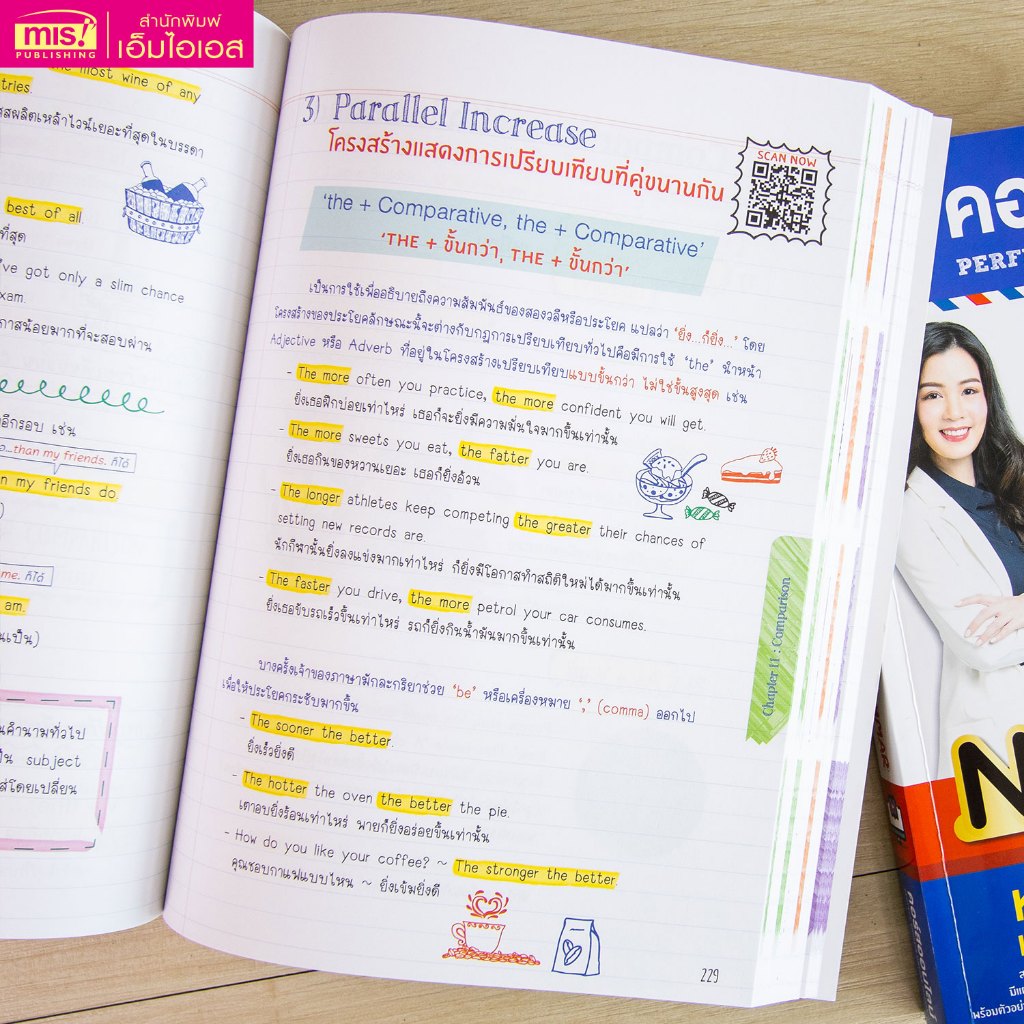 mis!
PUBLISHING
สำนักพิมพ์
เอ็มไอเอส
the most wine of any
tries
สผลิตเหล้าไวน์เยอะที่สุดในบรรดา
best of all
ที่สุด
've got only a slim chance
xam.
กาสน้อยมากที่จะสอบผ่าน
อีกรอบ เช่น
...than my friends. ก็ได้
n my friends do.
me. ก็ได้
am.
นเป็น)
นคำนามทั่วไป
ป็น subject
ส์โดยเปลี่ยน
3) Parallel Increase
โครงสร้างแสดงการเปรียบเทียบที่คู่ขนานกัน
SCAN NOW
'the + Comparative, the + Comparative'
'THE + ขั้นกว่า, THE + ขั้นกว่า'
เป็นการใช้เพื่ออธิบายถึงความสัมพันธ์ของสองวลีหรือประโยค แปลว่า 'ยิ่ง...ก็ยิ่ง...' โดย
โครงสร้างของประโยคลักษณะนี้จะต่างกับกฎการเปรียบเทียบทั่วไปคือมีการใช้ 'the' นำหน้า
Adjective หรือ Adverb ที่อยู่ในโครงสร้างเปรียบเทียบแบบขั้นกว่า ไม่ใช่ขั้นสูงสุด เช่น
- The more often you practice, the more confident you will get.
ยิ่งเธอฝึกบ่อยเท่าไหร่ เธอก็จะยิ่งมีความมั่นใจมากขึ้นเท่านั้น
- The more sweets you eat, the fatter you are.
ยิ่งเธอกินของหวานเยอะ เธอก็ยิ่งอ้วน
- The longer athletes keep competing the greater their chances of
setting new records are.
นักกีฬานั้นยิ่งลงแข่งมากเท่าไหร่ ก็ยิ่งมีโอกาสทำสถิติใหม่ได้มากขึ้นเท่านั้น
- The faster you drive, the more petrol your car consumes.
ยิ่งเธอขับรถเร็วขึ้นเท่าไหร่ รถก็ยิ่งกินน้ำมันมากขึ้นเท่านั้น
บางครั้งเจ้าของภาษามักละกริยาช่วย 'be' หรือเครื่องหมาย ',' (comma) ออกไป
เพื่อให้ประโยคกระชับมากขึ้น
- The sooner the better.
ยิ่งเร็วยิ่งดี
- The hotter the oven the better the pie.
เตาอบยิ่งร้อนเท่าไหร่ พายก็ยิ่งอร่อยขึ้นเท่านั้น
- How do you like your coffee? ~ The stronger the better.
คุณชอบกาแฟแบบไหน ~ ยิ่งเข้มยิ่งดี
Chapter 11 : Comparison
229
คอ
PERF
N
พร้อมตัวอย่า